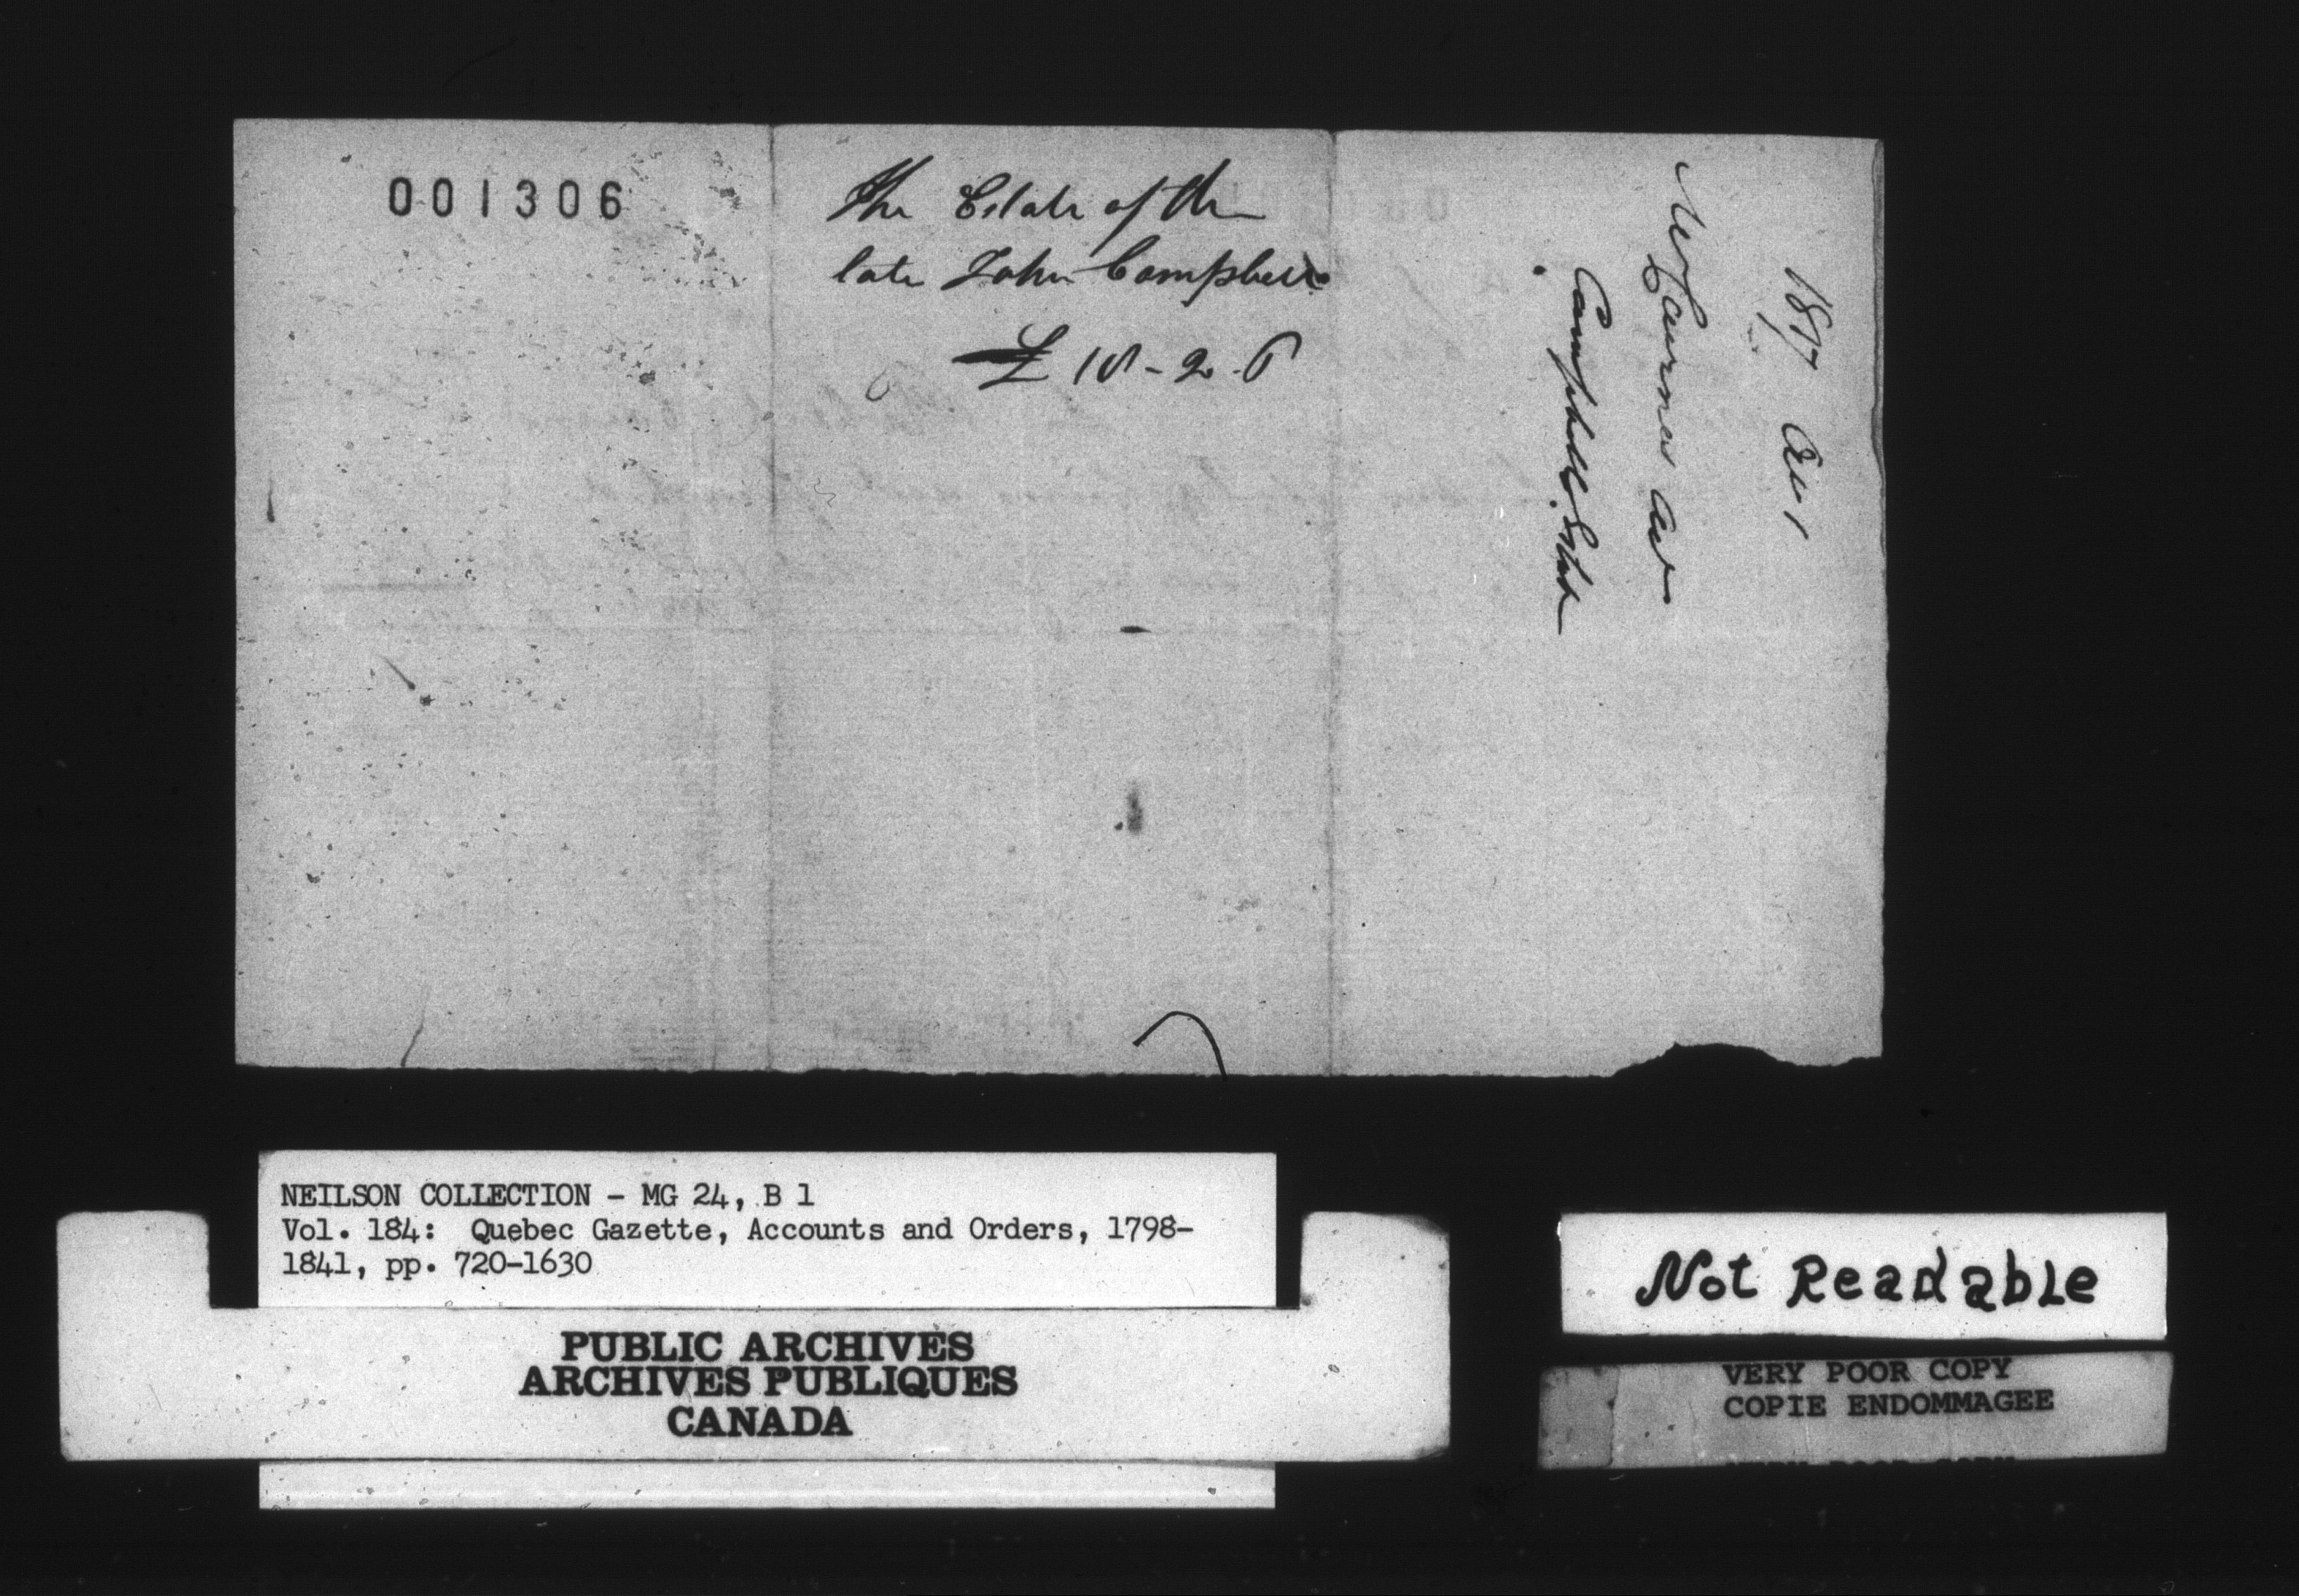 001306
The Estate of the
late John Campbell
£ 18-2-6
Campbell Estate
NEILSON COLLECTION - MG 24, B 1
Vol. 184: Quebec Gazette, Accounts and Orders, 1798-
1841, pp. 720-1630
PUBLIC ARCHIVES
ARCHIVES PUBLIQUES
CANADA
Not Readable
VERY POOR COPY
COPIE ENDOMMAGEE